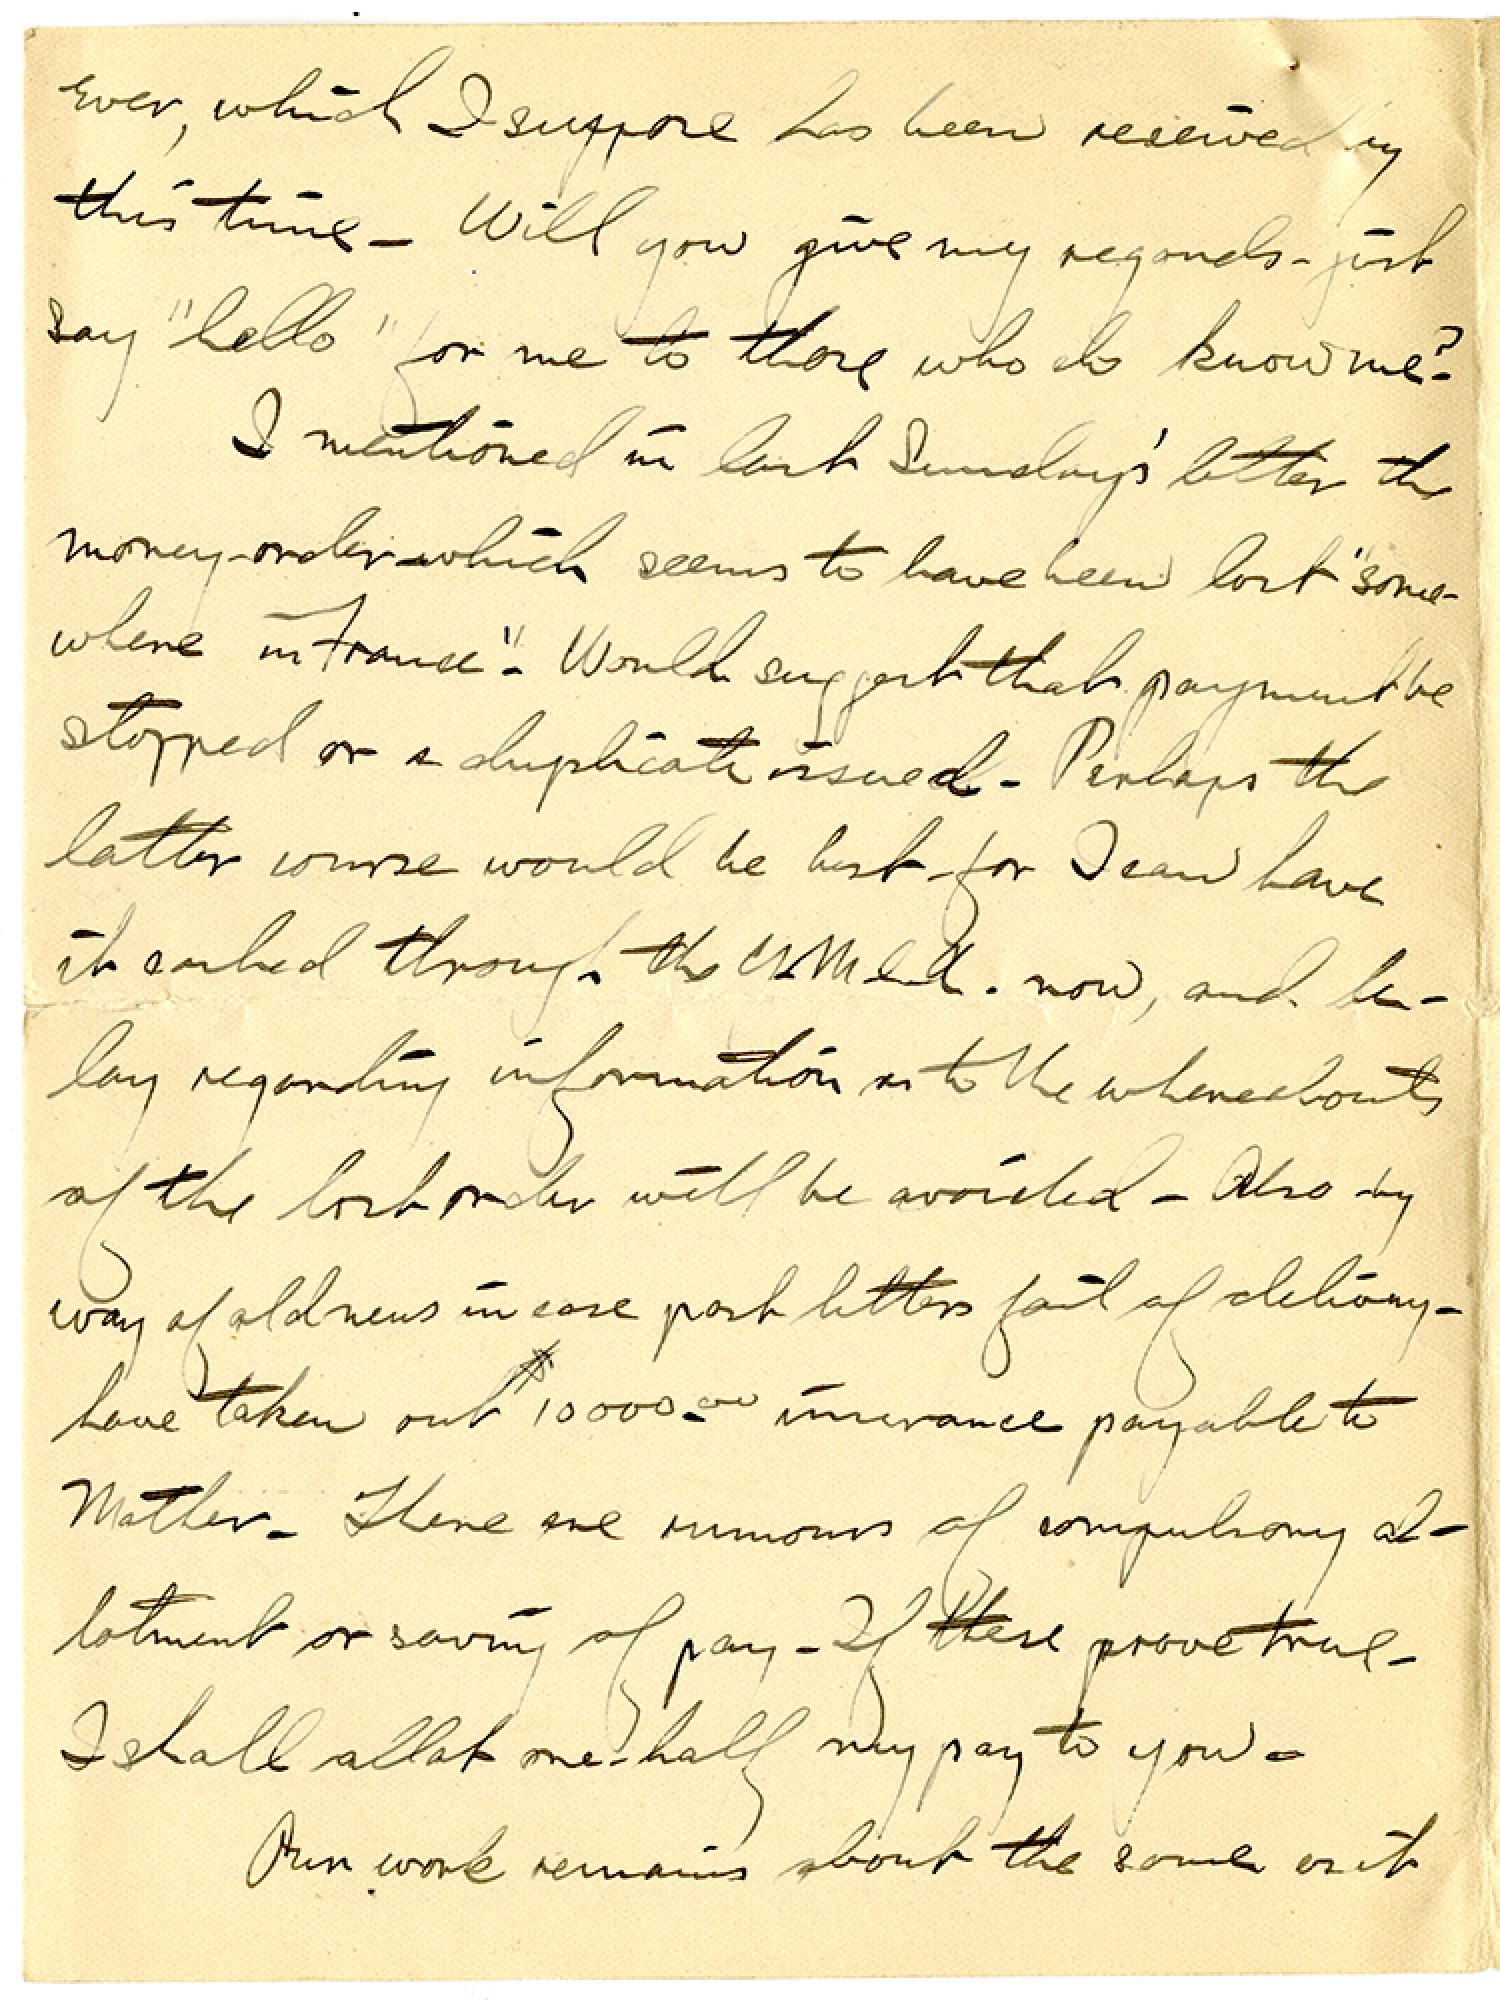 ever, which I suppose has been received by
this time - Will you give my regards - just
say "hello" for me to those who do know me? -
I mentioned in last Sunday's letter the
money-order which seems to have been lost "some-
where in France". - Would suggest that payment be
stopped or a duplicate issued - Perhaps the
latter course would be best for I can have
it cashed through the . now, and de-
lay regarding information as to the whereabouts
of the lost order will be avoided - Also by
way of old news in case past letters fail of delivery -
have taken out $10000.00 insurance payable to
Mother - There are rumours of compulsory al-
lotment or saving of pay - If these prove true -
I shall allot one-half my pay to you -
Our work remains about the same as it